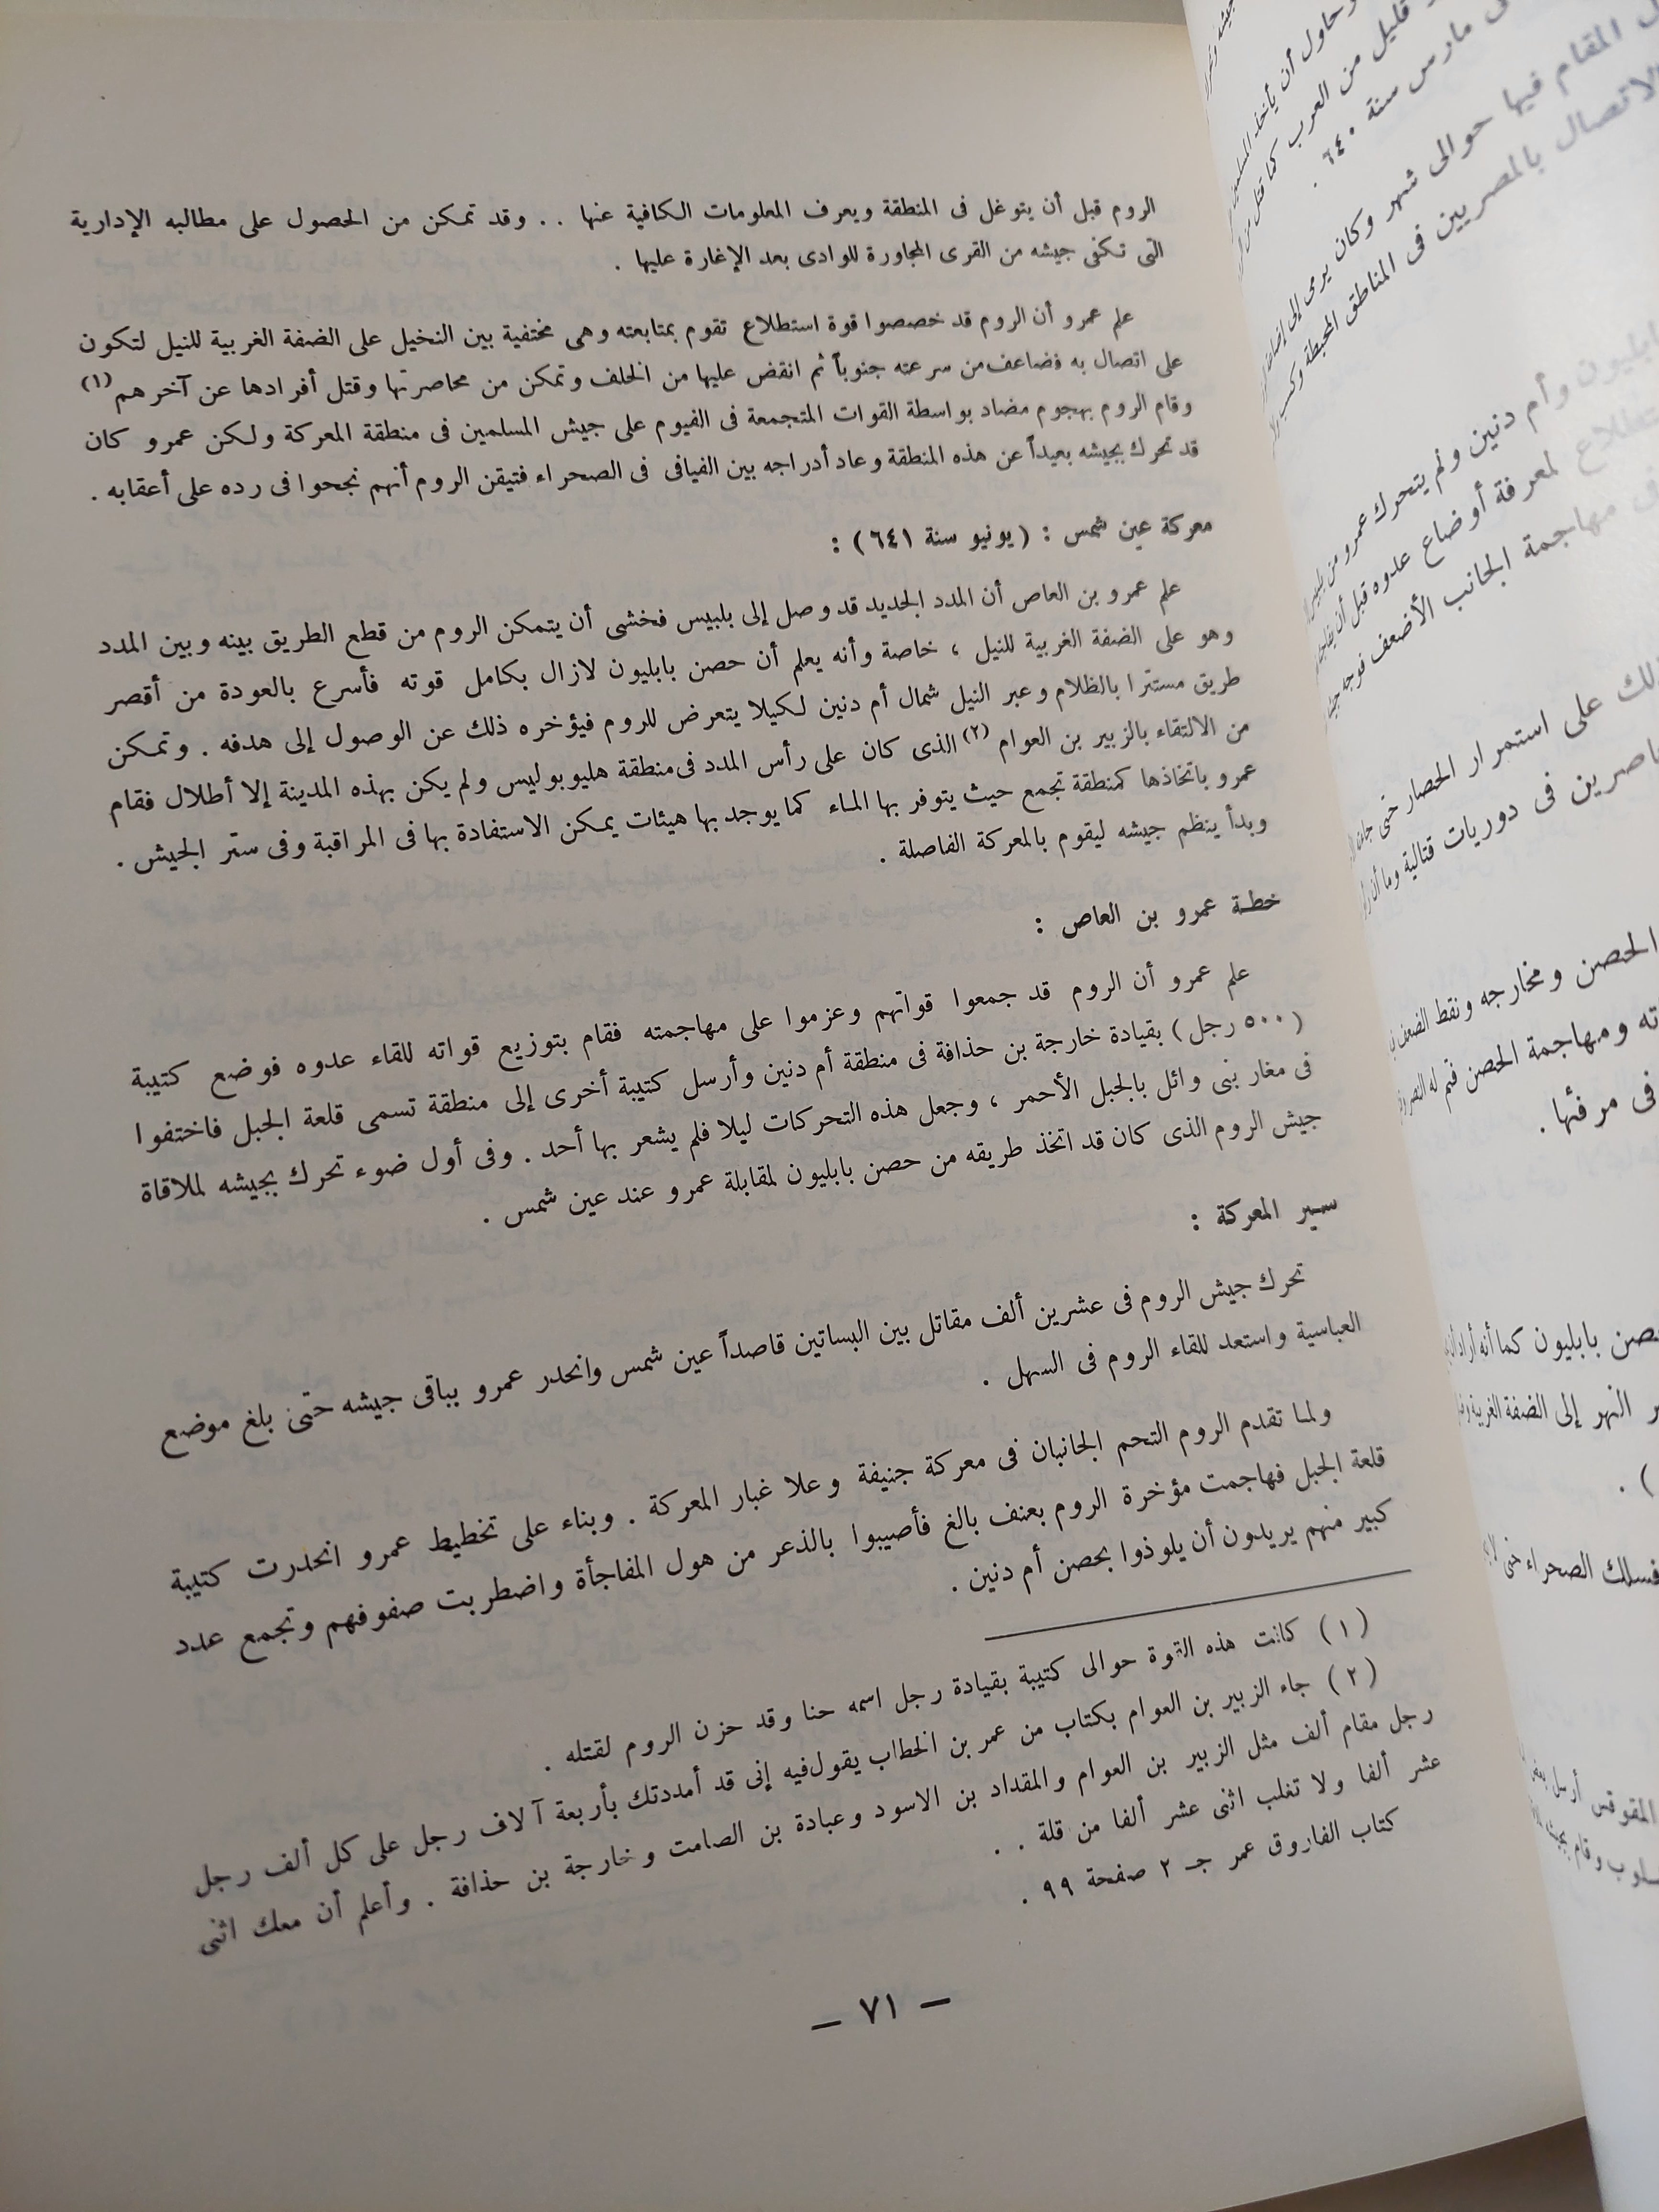 الروم قبل أن يتوغل فى المنطقة ويعرف المعلومات الكافية عنها . . وقد تمكن من الحصول على مطالبه الإدارية
التى تكفى جيشه من القرى المجاورة للوادى بعد الإغارة عليها .
علم عمرو أن الروم قد خصصوا قوة استطلاع تقوم بمتابعته وهى مختفية بين النخيل على الضفة الغربية للنيل لتكون
على اتصال به فضاعف من سرعته جنوباً ثم انقض عليها من الخلف وتمكن من محاصرتها وقتل أفرادها عن آخرهم (١)
وقام الروم بهجوم مضاد بواسطة القوات المتجمعة فى الفيوم على جيش المسلمين فى منطقة المعركة ولكن عمرو كان
قد تحرك بجيشه بعيداً عن هذه المنطقة وعاد أدراجه بين الفيافى فى الصحراء فتيقن الروم أنهم نجحوا فى رده على أعقابه .
معركة عين شمس : ( يونيو سنة ٦٤١ ) :
علم عمرو بن العاص أن المدد الجديد قد وصل إلى بلبيس فخشى أن يتمكن الروم من قطع الطريق بينه وبين المدد
وهو على الضفة الغربية للنيل ، خاصة وأنه يعلم أن حصن بابليون لازال بكامل قوته فأسرع بالعودة من أقصر
طريق مستترا بالظلام وعبر النيل شمال أم دنين لكيلا يتعرض للروم فيؤخره ذلك عن الوصول إلى هدفه . وتمكن
من الالتقاء بالزبير بن العوام (٢) الذى كان على رأس المدد فى منطقة هليوبوليس ولم يكن بهذه المدينة إلا أطلال فقام
عمرو باتخاذها كمنطقة تجمع حيث يتوفر بها الماء كما يوجد بها هيئات يمكن الاستفادة بها فى المراقبة وفى ستر الجيش .
وبدأ ينظم جيشه ليقوم بالمعركة الفاصلة .
خطة عمرو بن العاص :
علم عمرو أن الروم قد جمعوا قواتهم وعزموا على مهاجمته فقام بتوزيع قواته للقاء عدوه فوضع كتيبة
( ٥٠٠ رجل ) بقيادة خارجة بن حذافة فى منطقة أم دنين وأرسل كتيبة أخرى إلى منطقة تسمى قلعة الجبل فاختفوا
فى مغار بنى وائل بالجبل الأحمر ، وجعل هذه التحركات ليلا فلم يشعر بها أحد . وفى أول ضوء تحرك بجيشه لملاقاة
جيش الروم الذى كان قد اتخذ طريقه من حصن بابليون لمقابلة عمرو عند عين شمس .
سير المعركة :
تحرك جيش الروم فى عشرين ألف مقاتل بين البساتين قاصداً عين شمس وانحدر عمرو بباقى جيشه حتى بلغ موضع
العباسية واستعد للقاء الروم فى السهل .
ولما تقدم الروم التحم الجانبان فى معركة جنيفة وعلا غبار المعركة . وبناء على تخطيط عمرو انحدرت كتيبة
قلعة الجبل فهاجمت مؤخرة الروم بعنف بالغ فأصيبوا بالذعر من هول المفاجأة واضطربت صفوفهم وتجمع عدد
كبير منهم يريدون أن يلوذوا بحصن أم دنين .
( ١ ) كانت هذه القوة حوالى كتيبة بقيادة رجل اسمه حنا وقد حزن الروم لقتله .
( ٢ ) جاء الزبير بن العوام بكتاب من عمر بن الخطاب يقول فيه إنى قد أمددتك بأربعة آلاف رجل على كل ألف رجل
رجل مقام ألف مثل الزبير بن العوام والمقداد بن الاسود وعبادة بن الصامت وخارجة بن حذافة . وأعلم أن معك اثنى
عشر ألفا ولا تغلب اثنى عشر ألفا من قلة . .
كتاب الفاروق عمر جـ ٢ صفحة ٩٩ .
– ٧١ –
وحاول أن يأخذ
قليل من العرب كما قتل من
مارس سنة ٦٤٠ .
المقام فيها حوالى شهر وكان يرمى إلى
الاتصال بالمصريين فى المناطق المحيطة وكسب
وأم دنين ولم يتحرك عمرو من بلبيس
لمعرفة أوضاع عدوه قبل أن
مهاجمة الجانب الأضعف فوجه
على استمرار الحصار حتى
فى دوريات قتالية وما أن
الحصن ومخارجه ونقط الضعف
ومهاجمة الحصن فتم له النصر
فى مرفئها .
بابليون كما أنه أراد
النهر إلى الضفة الغربية
) .
فسلك الصحراء حتى
المقوقس أرسل
وقام